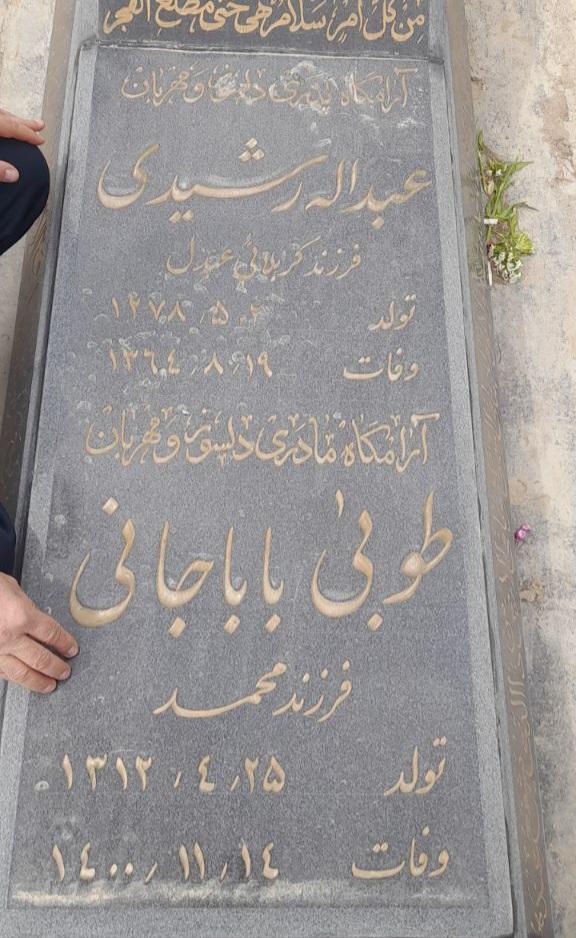 من كل أمر سلام هي حتى مطلع الفجر
آرامگاه پدری دلسوز و مهربان
عبداله رشیدی
فرزند کربلائی عبدل
تولد ۱۲۷۸٫۵٫۲
وفات ۱۳۶۴٫۸٫۱۹
آرامگاه مادری دلسوز و مهربان
طوبیٰ باباجانی
فرزند محمد
تولد ۱۳۱۲٫۴٫۲۵
وفات ۱۴۰۰٫۱۱٫۱۴